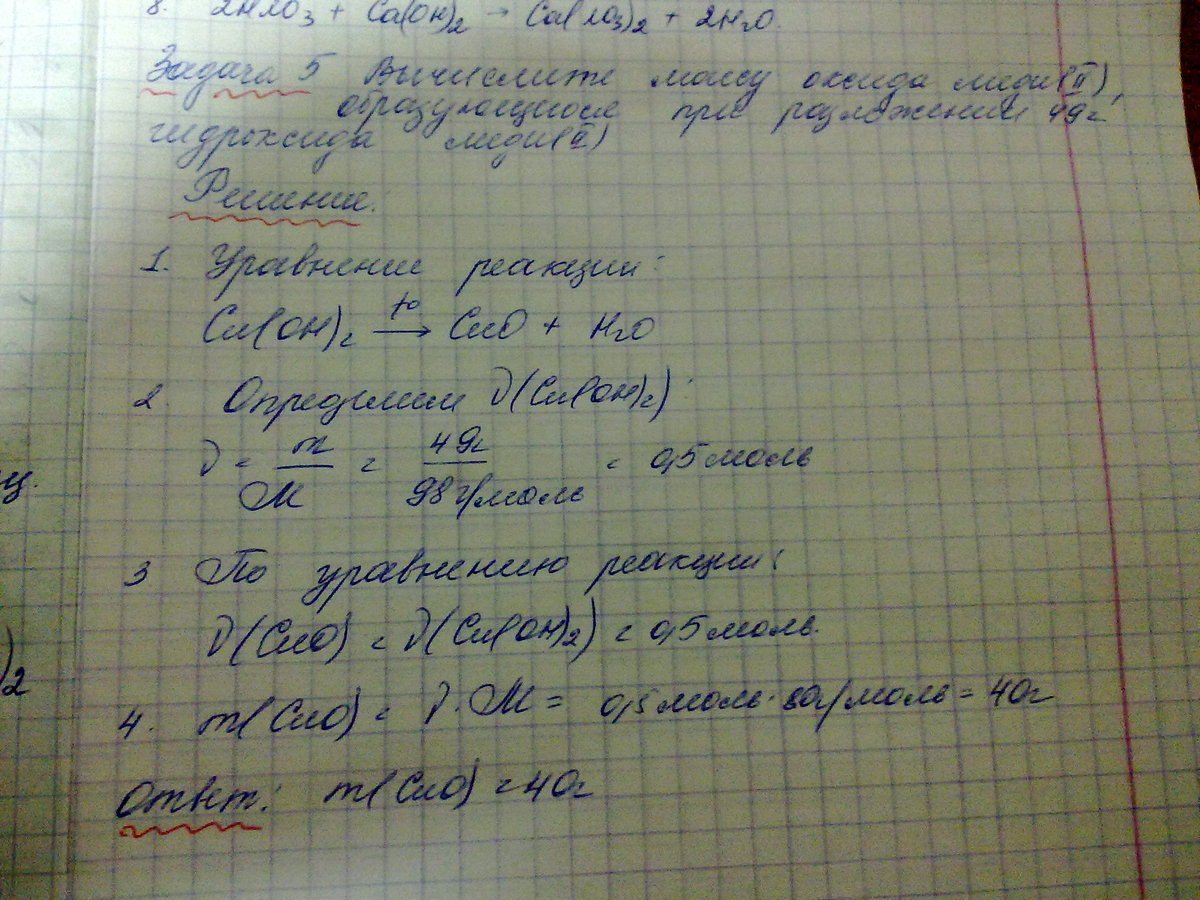 8. 2HNO3 + Ca(OH)2 → Ca(NO3)2 + 2H2O.
Задача 5 Вычислите массу оксида меди(II),
образующегося при разложении 49г
гидроксида меди(II)
Решение:
1. Уравнение реакции:
Cu(OH)2 —t°→ CuO + H2O
2. Определим ν(Cu(OH)2):
ν = m/M = 49г/98г/моль = 0,5моль
3 По уравнению реакции:
ν(CuO) = ν(Cu(OH)2) = 0,5моль.
4. m(CuO) = ν·M = 0,5моль·80г/моль = 40г
Ответ: m(CuO) = 40г
ц.
)2